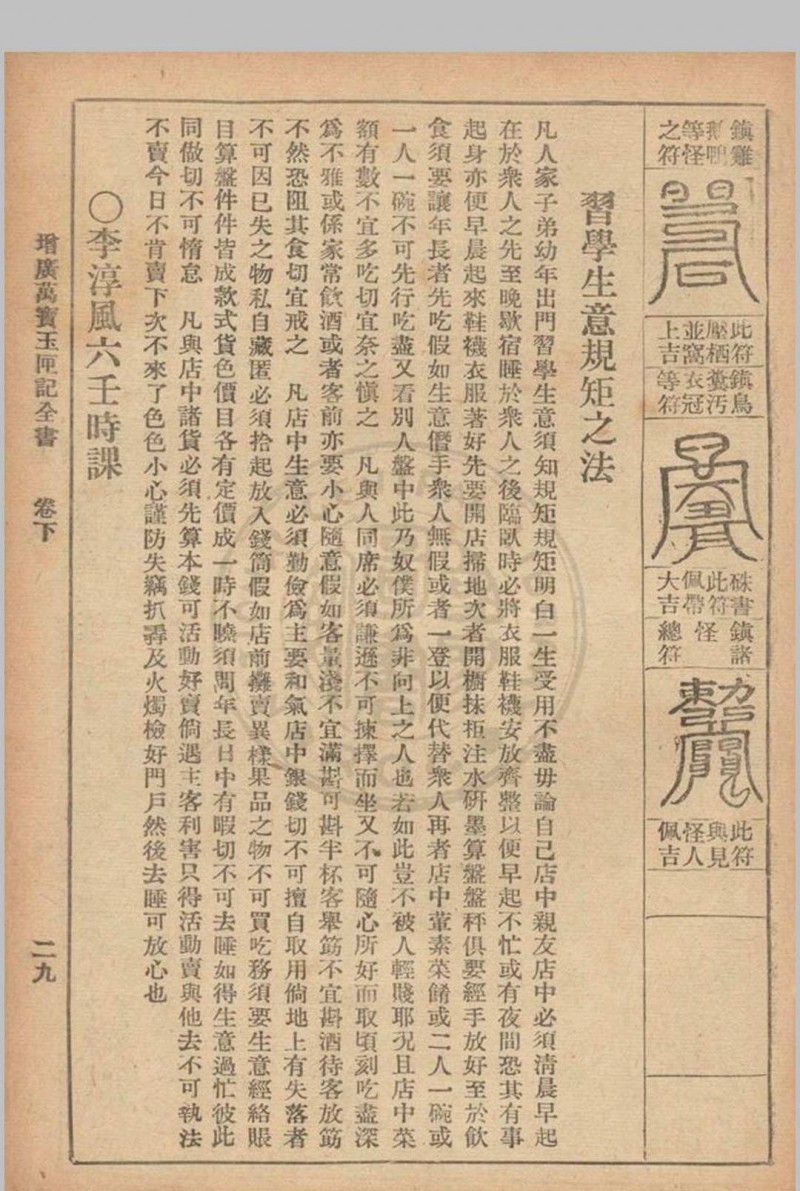 鎮雞
鵝鴨
等怪
之符
此符
壓栖
並窩
上吉
鎮鳥
糞污
衣冠
等符
硃書
此符
佩帶
大吉
鎮諸
怪
總符
此符
與見
怪人
佩吉
習學生意規矩之法
凡人家子弟幼年出門習學生意須知規矩規矩明白一生受用不盡毋論自己店中親友店中必須清晨早起
在於衆人之先至晚歇宿睡於衆人之後臨臥時必將衣服鞋襪安放齊整以便早起不忙或有夜間恐其有事
起身亦便早晨起來鞋襪衣服著好先要開店掃地次者開櫥抹拒注水硏墨算盤盤秤俱要經手放好至於飲
食須要讓年長者先吃假如生意僭手衆人無假或者一登以便代替衆人再者店中葷素菜餚或二人一碗或
一人一碗不可先行吃盡又看別人盤中此乃奴僕所爲非向上之人也若如此豈不被人輕賤耶况且店中菜
額有數不宜多吃切宜奈之愼之　凡與人同席必須謙遜不可揀擇而坐又不可隨心所好而取頃刻吃盡深
爲不雅或係家常飲酒或者客前亦要小心隨意假如客量淺不宜滿斟可斟半杯客舉筯不宜斟酒待客放筯
不然恐阻其食切宜戒之　凡店中生意必須勤儉爲主要和氣店中銀錢切不可擅自取用倘地上有失落者
不可因已失之物私自藏匿必須拾起放入錢筒假如店前攤賣異樣果品之物不可買吃務須要生意經絡賬
目算盤件件皆成款式貨色價目各有定價成一時不曉須問年長日中有暇切不可去睡如得生意過忙彼此
同做切不可惰怠　凡與店中諸貨必須先算本錢可活動好賣倘遇主客利害只得活動賣與他去不可執法
不賣今日不肯賣下次不來了色色小心謹防失竊扒弄及火燭檢好門戶然後去睡可放心也
〇李淳風六壬時課
增廣萬寶玉匣記全書　卷下　二九